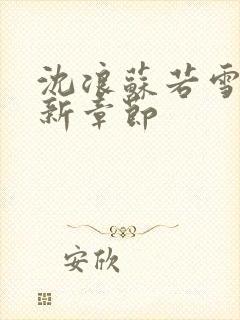 沈浪蘇若雪
新章節
安欣